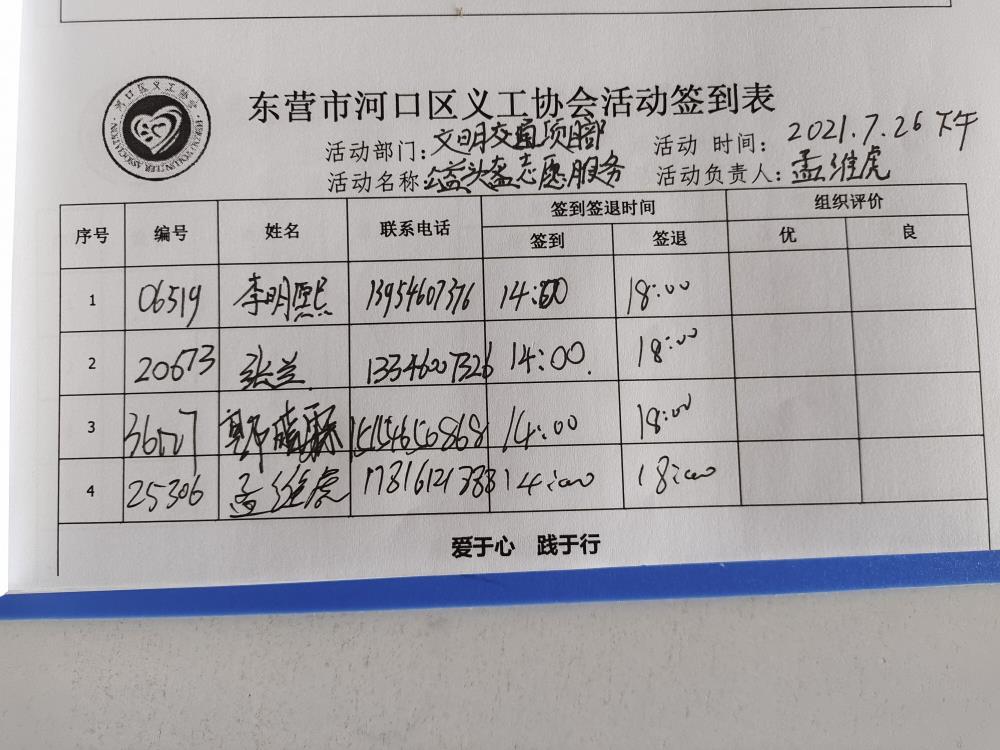 河口区义工协会
HEKOU VOLUNTEER ASSOCIATION
东营市河口区义工协会活动签到表
活动部门：文明交通项目部 活动 时间： 2021.7.26 下午
活动名称：公益头盔志愿服务 活动负责人：孟维虎
序号 编号 姓名 联系电话 签到签退时间 组织评价
签到 签退 优 良
1 06519 李明熙 13954607376 14:00 18:00
2 20673 张兰 13346007326 14:00. 18:00
3 14:00 18:00
4 25306 孟维虎 17816121333 14:00 18:00
爱于心 践于行